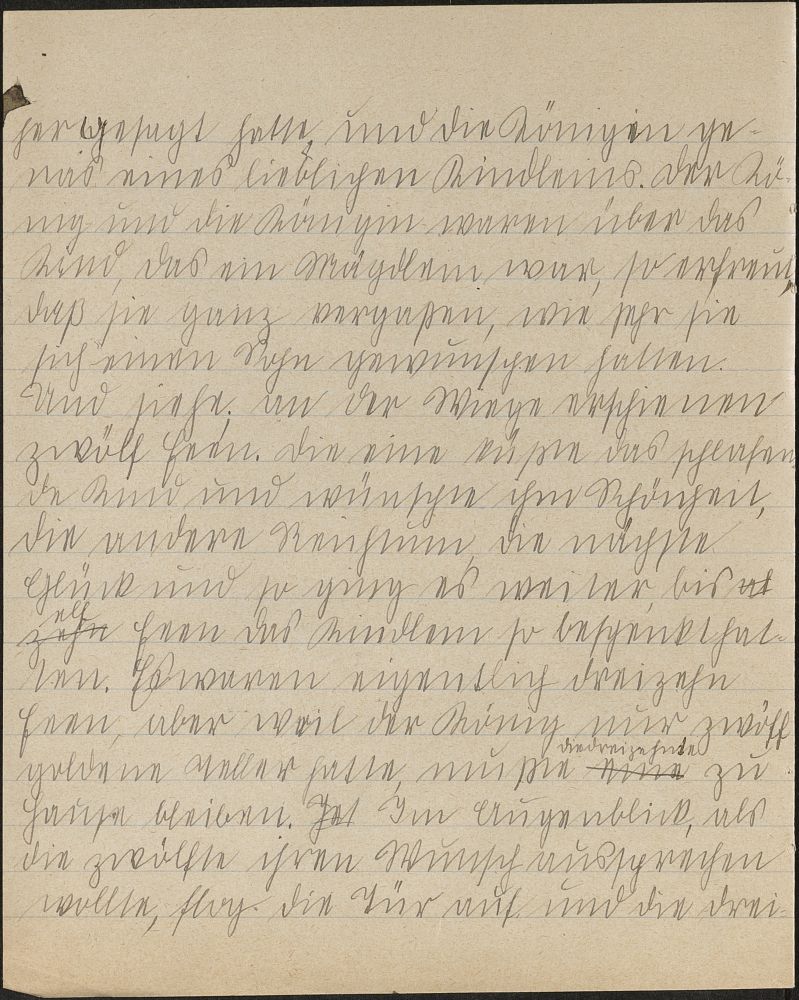 hergesagt hatte, und die Königin ge-
nas eines lieblichen Kindleins. Der Kö-
nig und die Königin waren über das
Kind, das ein Mägdlein war, so erfreut,
daß sie ganz vergaßen, wie sehr sie
sich einen Sohn gewünschen hatten.
Und siehe, an der Wiege erschienen
zwölf Feen. Die eine küßte das schlafen
de Kind und wünschte ihm Schönheit,
die andere Reichtum, die nächste
Glück und so ging es weiter, bis al
elf
zehn Feen das Kindlein so beschenkt hat-
ten. Es waren eigentlich dreizehn
Feen, aber weil der König nur zwölf
die dreizehnte
goldene Teller hatte, mußte eine zu
Hause bleiben. Jet Im Augenblick, als
die zwölfte ihren Wunsch aussprechen
wollte, flog die Tür auf und die drei-